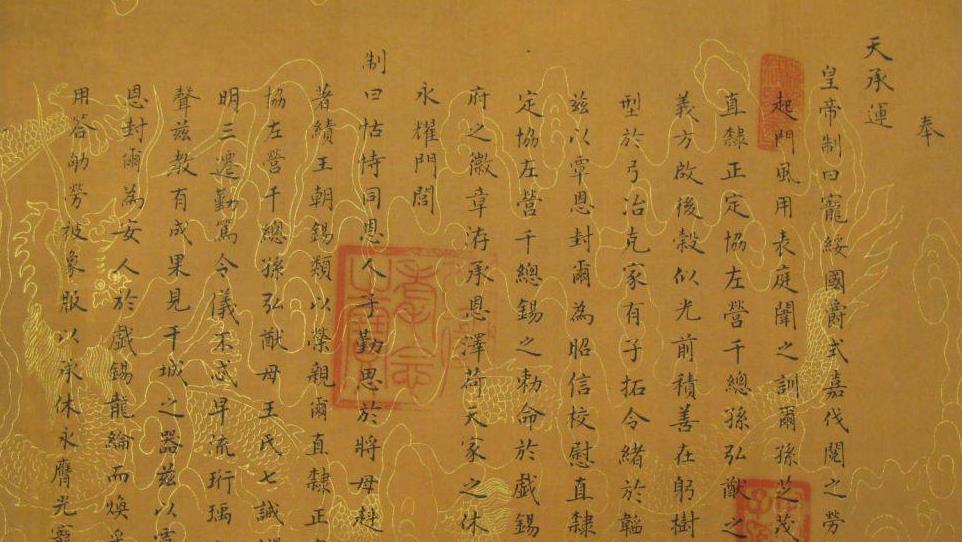 奉
天承運
皇帝制曰寵綏國爵式嘉伐閱之勞
起門風用表庭闈之訓爾孫芝茂
直隸正定協左營千總孫弘猷之
義方啟後穀似光前積善在躬樹
型於弓冶克家有子拓令緒於韜
茲以覃恩封爾為昭信校慰直隸
定協左營千總錫之勅命於戲錫
府之徽章洊承恩澤荷天家之休
永耀門閭
制曰怙恃同恩人子勤思於將母赳
著績王朝錫類以榮親爾直隸正
協左營千總孫弘猷母王氏七誡
明三遷勤篤令儀不忒早流珩瑀
聲茲教有成果見干城之器茲以覃
恩封爾為安人於戲錫龍綸而煥
用答劬勞被象服以承休永膺光寵